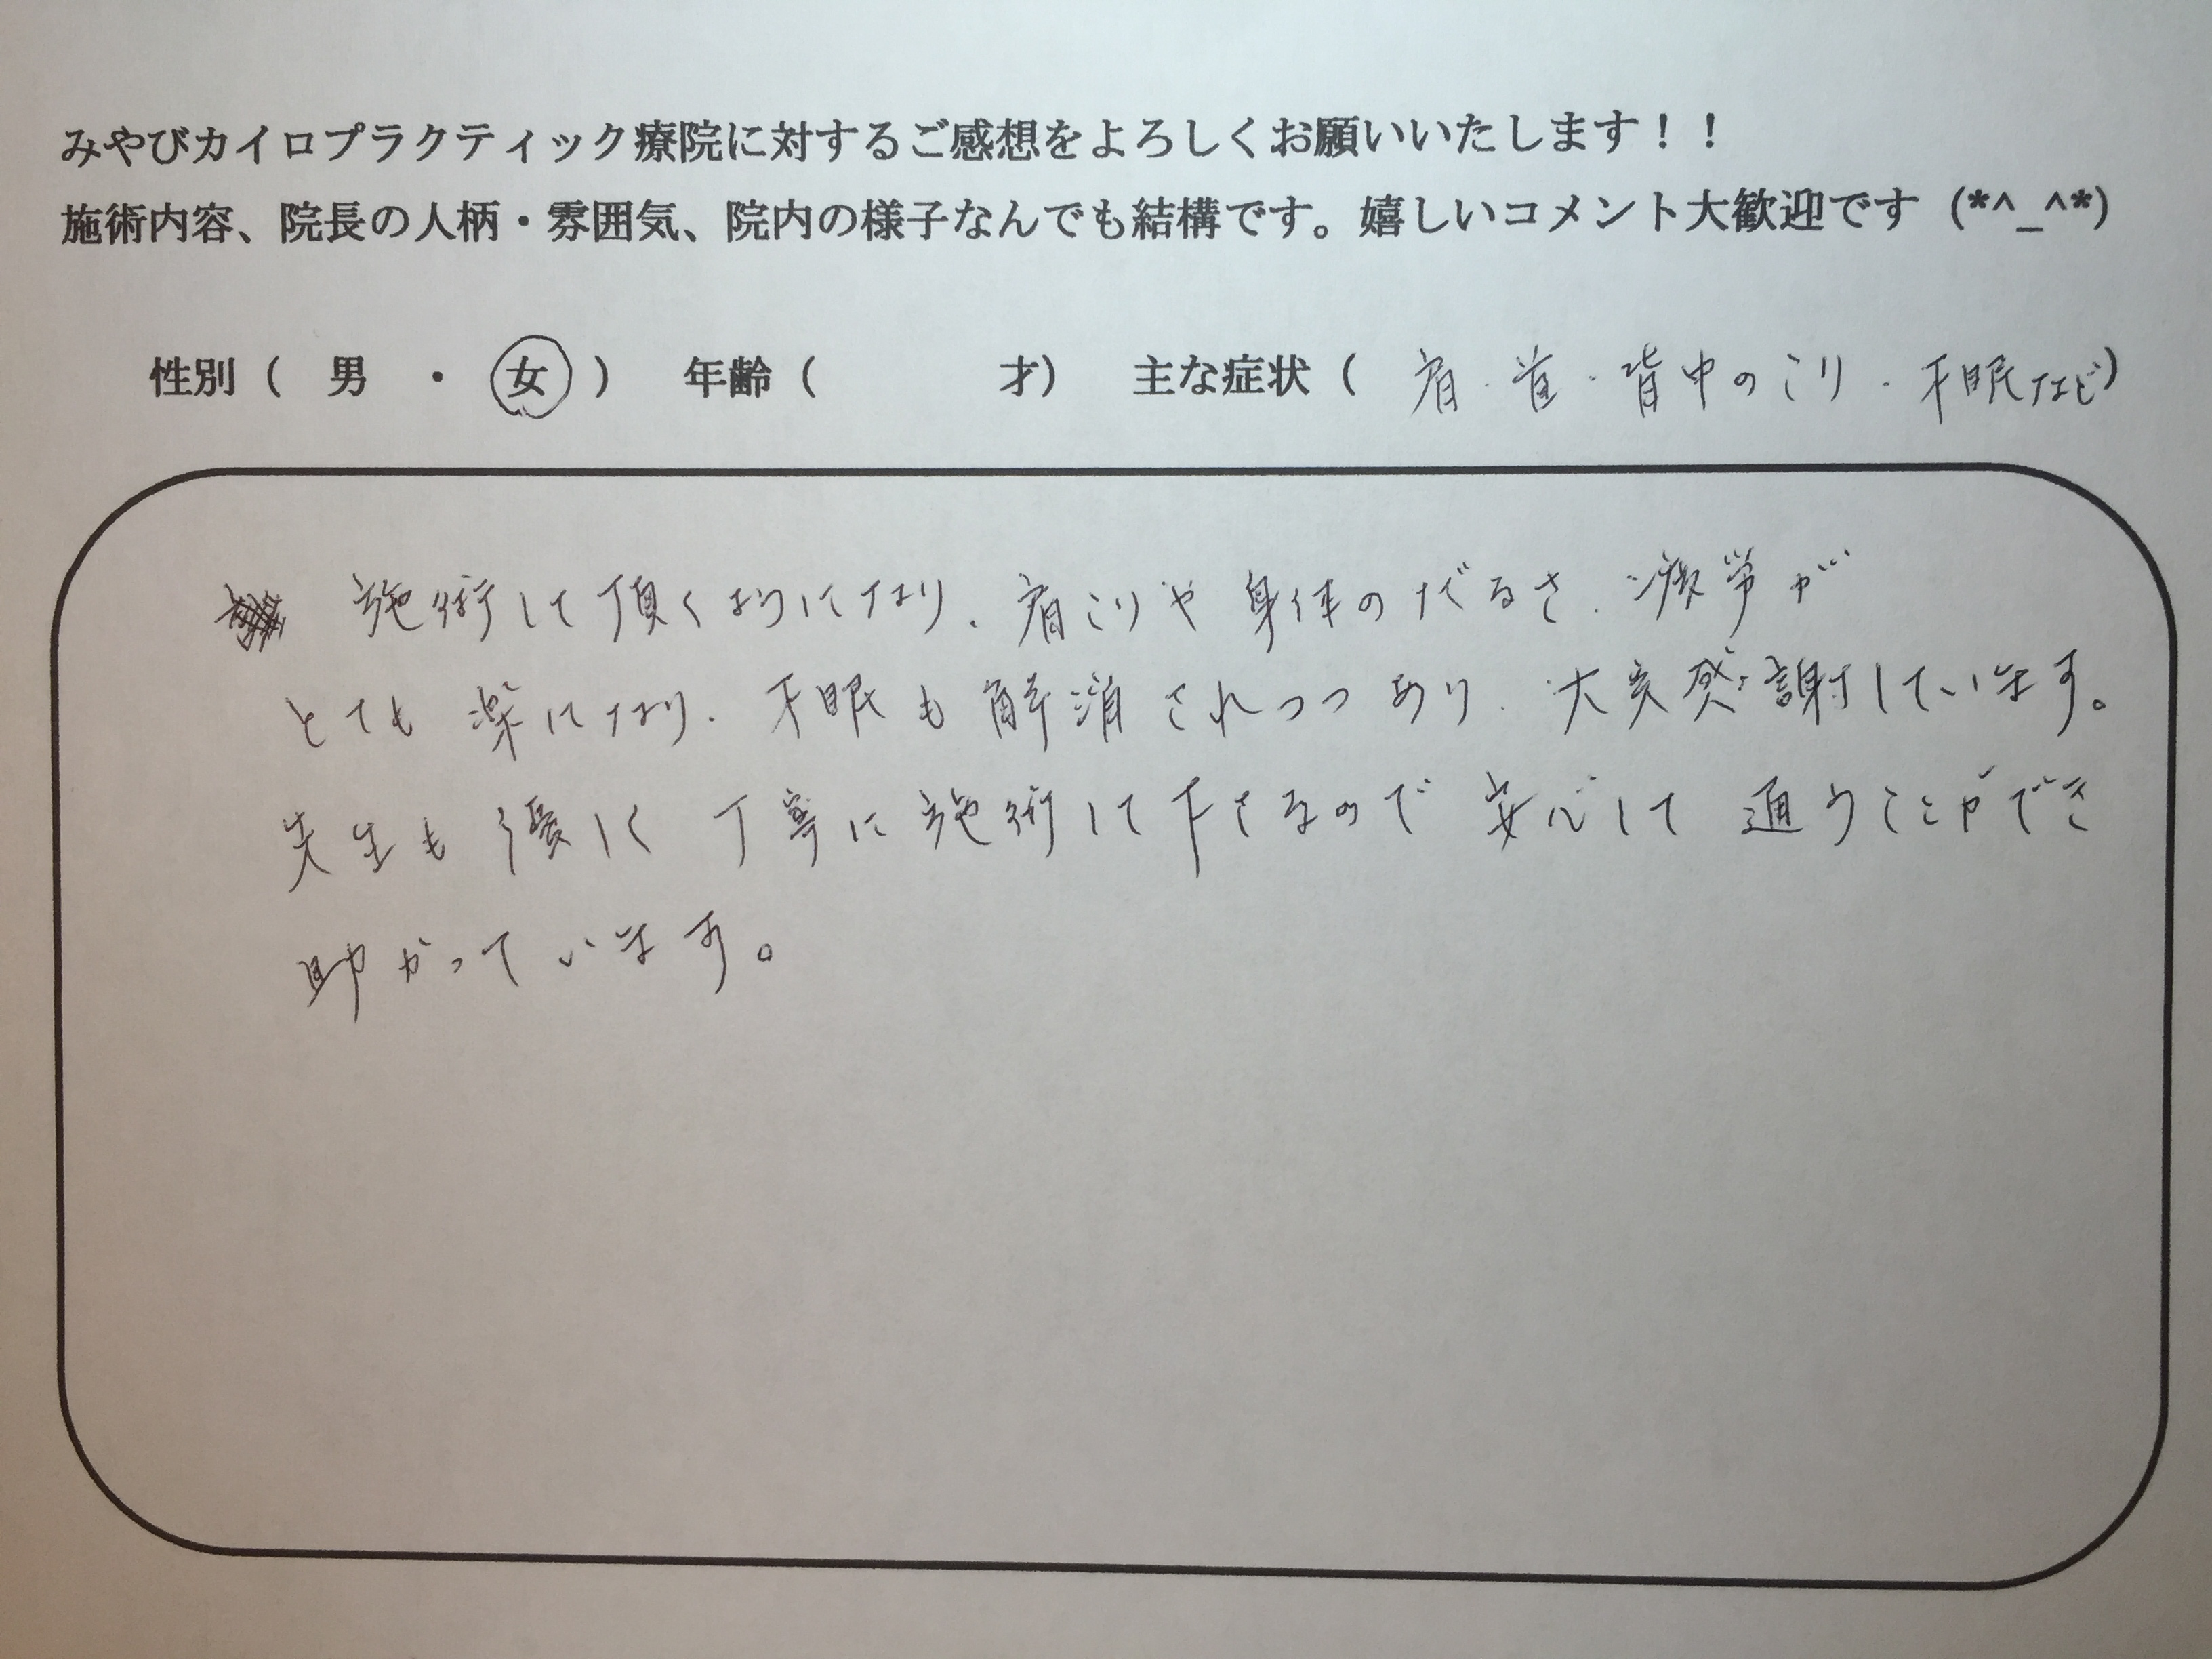 みやびカイロプラクティック療院に対するご感想をよろしくお願いいたします！！
施術内容、院長の人柄・雰囲気、院内の様子なんでも結構です。嬉しいコメント大歓迎です（*^_^*）
性別（　男　・　女　）　年齢（　　　　才）　主な症状（　肩・首・背中のこり・不眠など）
施術して頂くようになり、肩こりや身体のだるさ、疲労が
とても楽になり、不眠も解消されつつあり、大変感謝しています。
先生も優しく丁寧に施術して下さるので安心して通うことができ
助かっています。